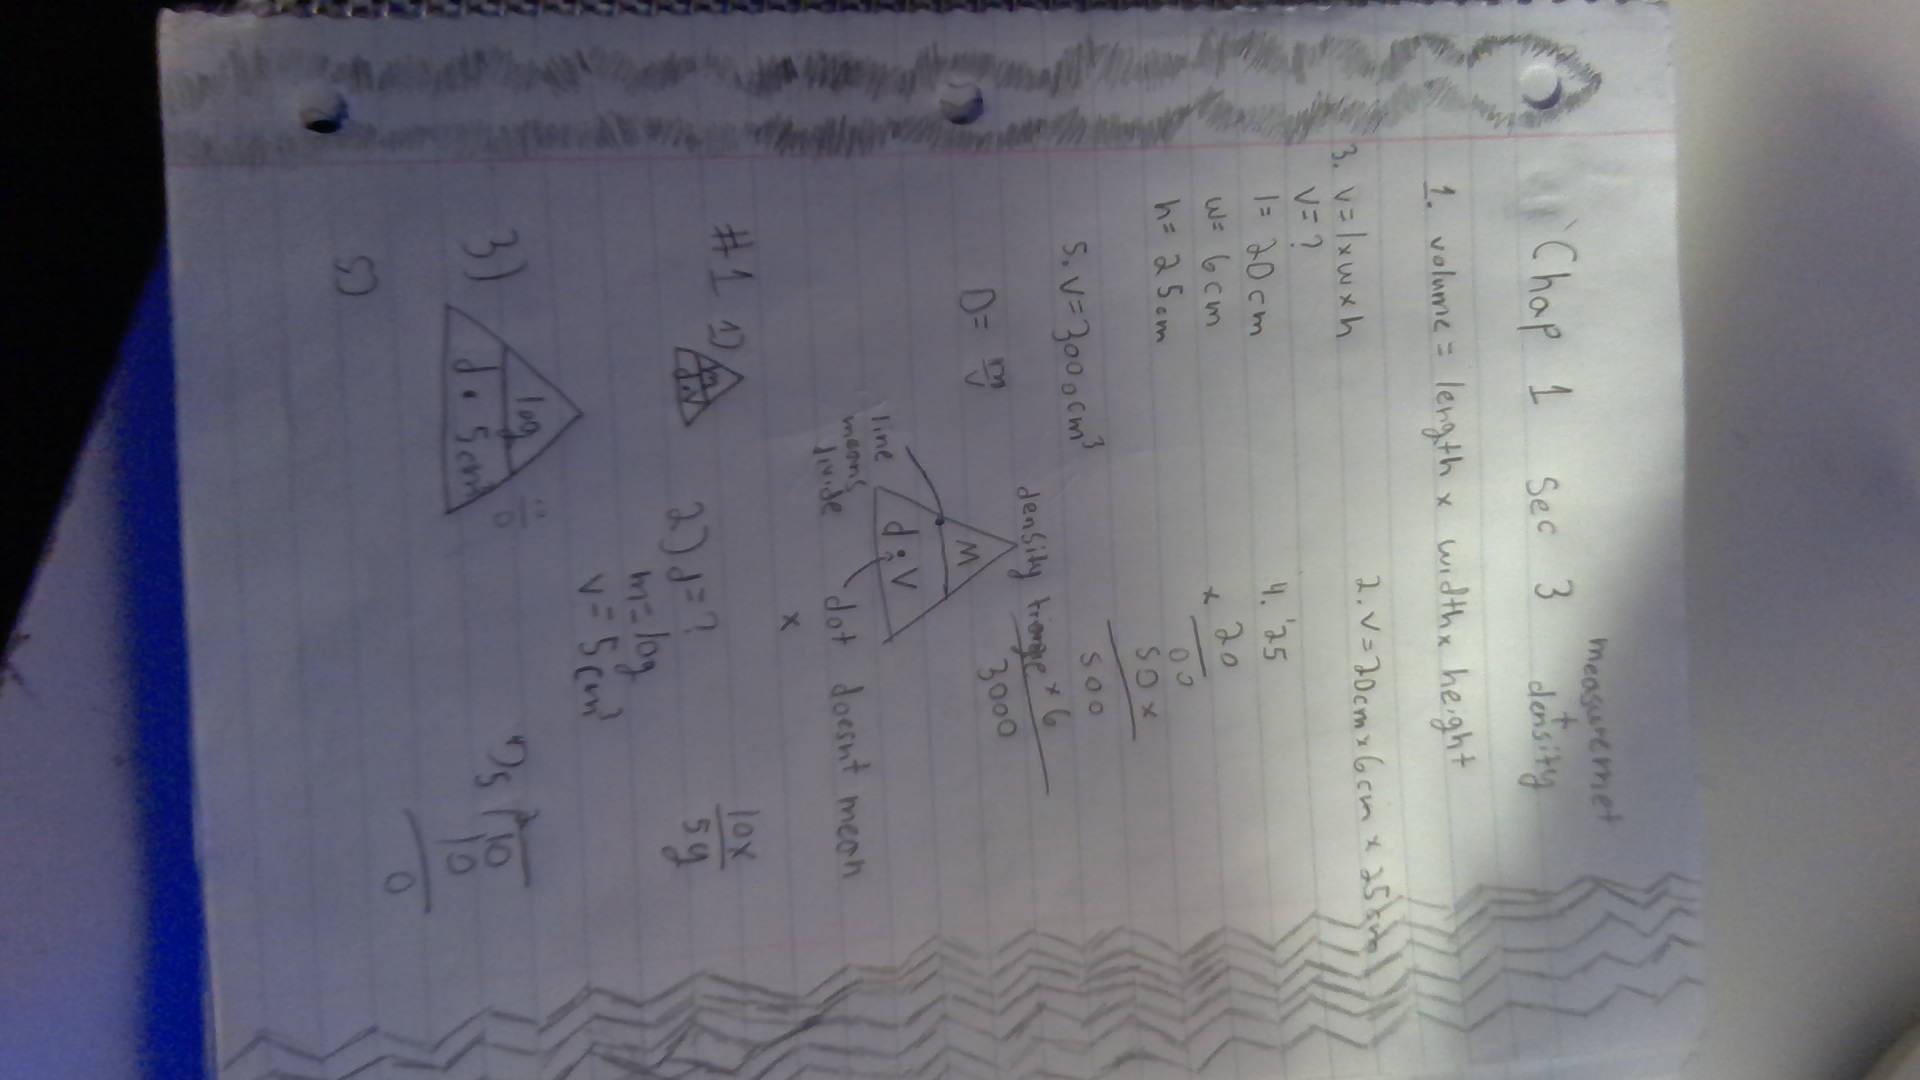 measuremet
Chap 1 Sec 3 + density
1. volume = length x width x height
2. v=20cm x 6cm x 25cm
3. v=lxwxh
v=?
l= 20cm
w= 6cm
h= 25cm
4. 25
x 20
00
50x
500
x 6
3000
5. v=3000cm³
density
D= m/v
M
d • V
line means divide
dot doesnt mean x
#1 1)
m
d•V
2) d=?
m=10g
v=5cm³
10x
5y
3)
10g
d • 5cm³
4) 5 10
2
10
0
5)